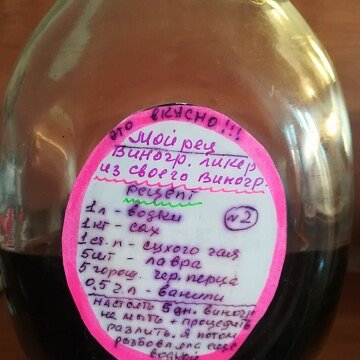 это ВКУСНО!!!
Мой рец
Виногр. ликер
из своего виногр.
рецепт
№2
1 л - водки
1 кг - сах
1 ст. л - сухого чая
5 шт - лавра
5 горош. чер. перца
0,5 г. л - ванили
настоять 5 дн. виногр
не мыть + процедить
разлить. я потом
разбовляла еще
водкой